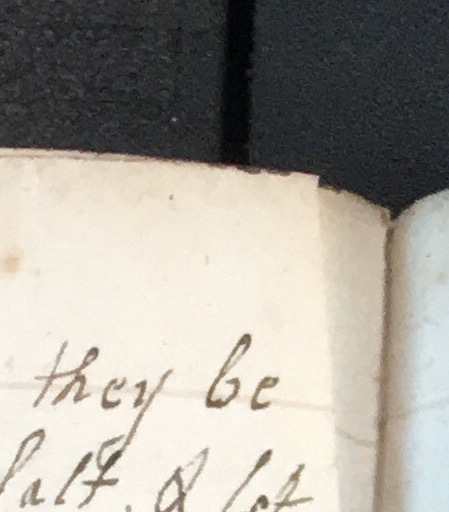 they be
salt, & let